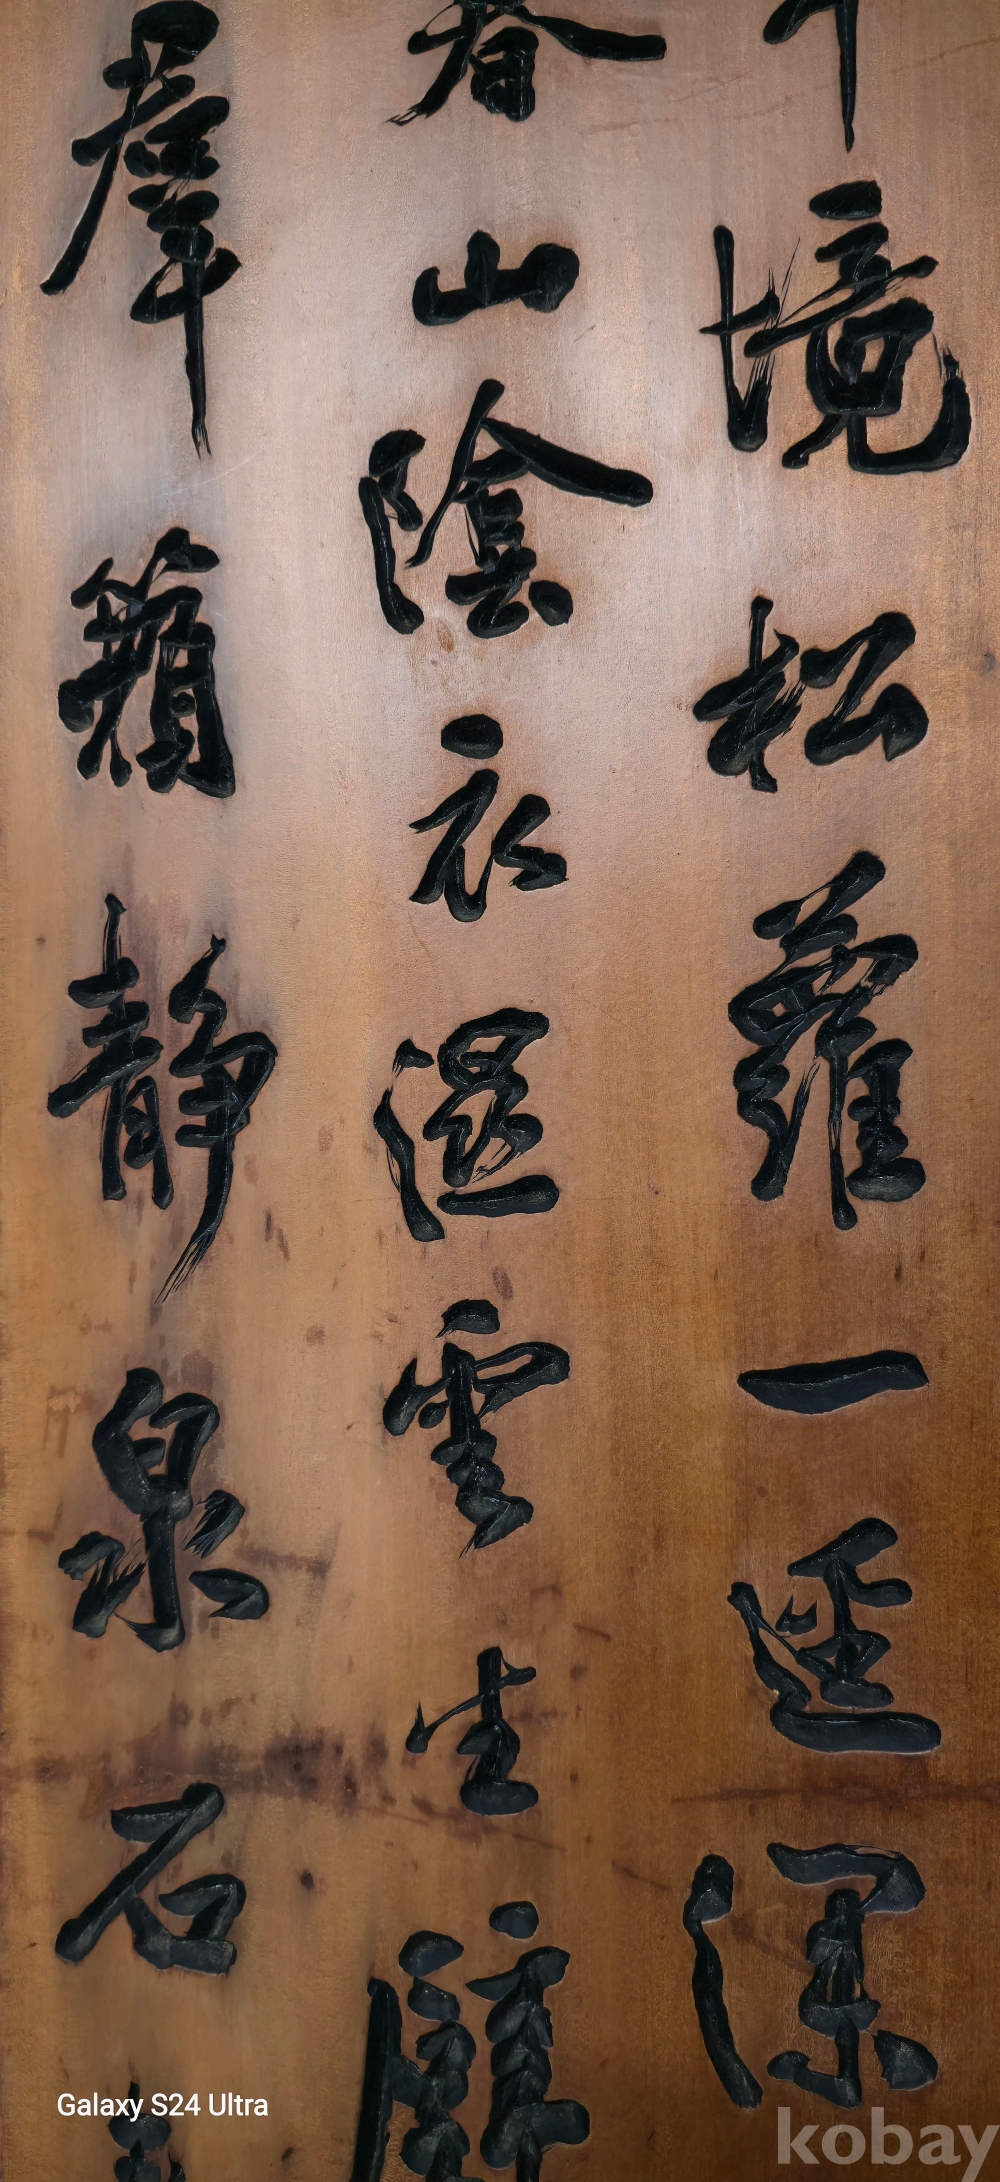 境松蘿一逕深
春山陰衣濕雲生
羣籟静泉石
Galaxy S24 Ultra
kobay